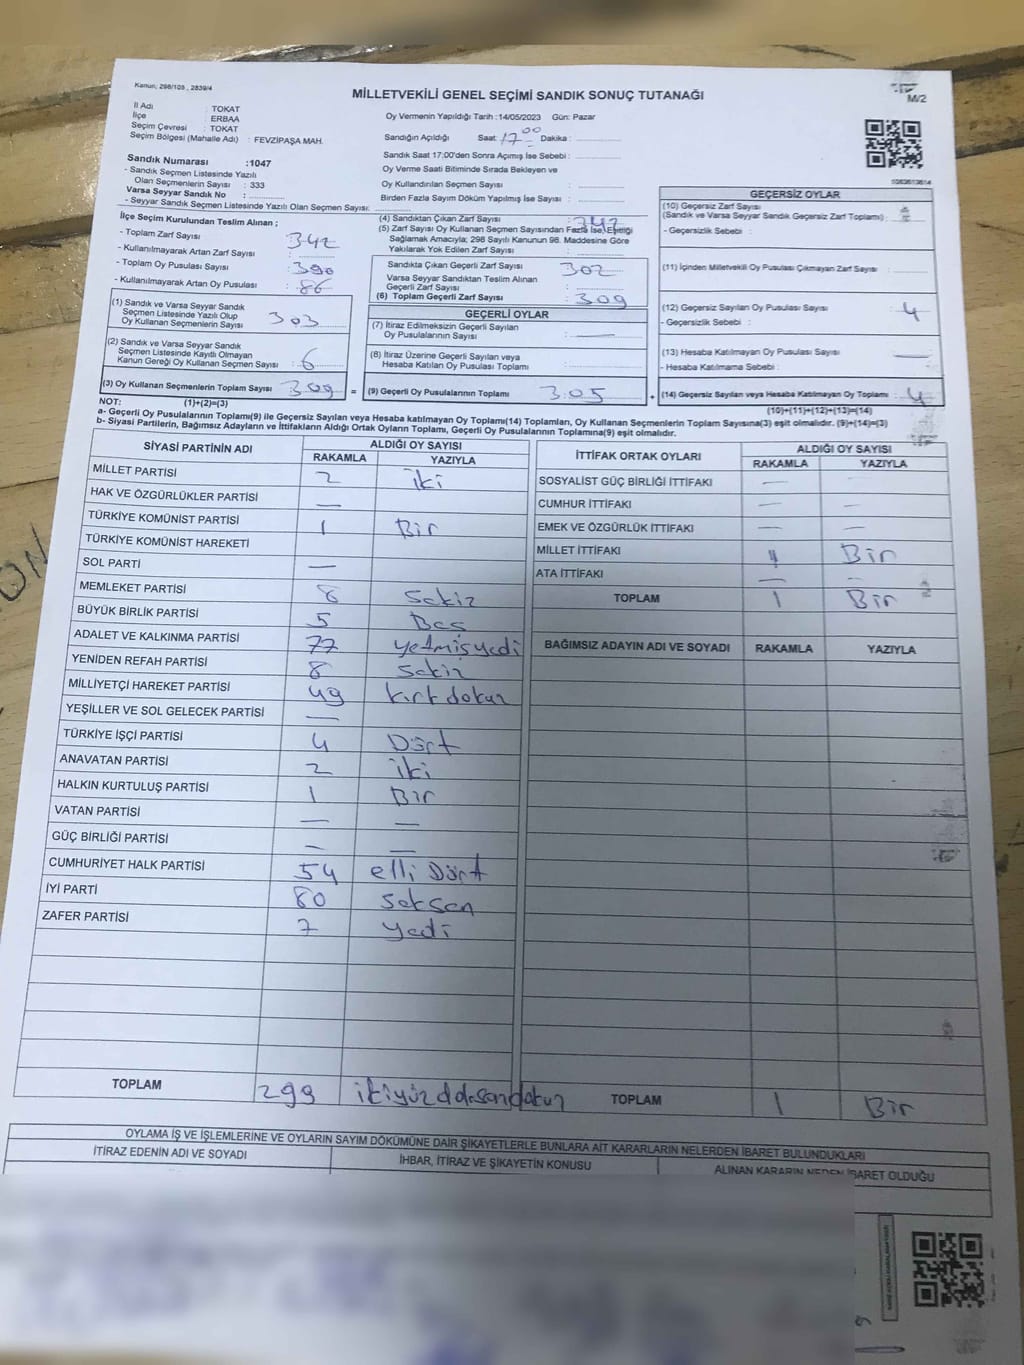 Kanun; 298/105 , 2839/4
MİLLETVEKİLİ GENEL SEÇİMİ SANDIK SONUÇ TUTANAĞI
M/2
İl Adı : TOKAT
İlçe : ERBAA
Seçim Çevresi : TOKAT
Seçim Bölgesi (Mahalle Adı) : FEVZİPAŞA MAH.
Sandık Numarası :1047
- Sandık Seçmen Listesinde Yazılı
Olan Seçmenlerin Sayısı : 333
Varsa Seyyar Sandık No :
- Seyyar Sandık Seçmen Listesinde Yazılı Olan Seçmen Sayısı:
Oy Vermenin Yapıldığı Tarih :14/05/2023 Gün: Pazar
Sandığın Açıldığı Saat: 17 00 Dakika:
Sandık Saat 17:00'den Sonra Açımış İse Sebebi :
Oy Verme Saati Bitiminde Sırada Bekleyen ve
Oy Kullandırılan Seçmen Sayısı :
Birden Fazla Sayım Döküm Yapılmış İse Sayısı :
İlçe Seçim Kurulundan Teslim Alınan ;
- Toplam Zarf Sayısı : 342
- Kullanılmayarak Artan Zarf Sayısı :
- Toplam Oy Pusulası Sayısı : 390
- Kullanılmayarak Artan Oy Pusulası : 86
(1) Sandık ve Varsa Seyyar Sandık
Seçmen Listesinde Yazılı Olup
Oy Kullanan Seçmenlerin Sayısı : 303
(2) Sandık ve Varsa Seyyar Sandık
Seçmen Listesinde Kayıtlı Olmayan
Kanun Gereği Oy Kullanan Seçmen Sayısı : 6
(3) Oy Kullanan Seçmenlerin Toplam Sayısı : 309 =
(1)+(2)=(3)
(4) Sandıktan Çıkan Zarf Sayısı :
(5) Zarf Sayısı Oy Kullanan Seçmen Sayısından Fazla İse, Eşitliği
Sağlamak Amacıyla; 298 Sayılı Kanunun 98. Maddesine Göre
Yakılarak Yok Edilen Zarf Sayısı :
Sandıkta Çıkan Geçerli Zarf Sayısı : 302
Varsa Seyyar Sandıktan Teslim Alınan
Geçerli Zarf Sayısı :
(6) Toplam Geçerli Zarf Sayısı : 309
GEÇERLİ OYLAR
(7) İtiraz Edilmeksizin Geçerli Sayılan
Oy Pusulalarının Sayısı : —
(8) İtiraz Üzerine Geçerli Sayılan veya
Hesaba Katılan Oy Pusulası Toplamı :
(9) Geçerli Oy Pusulalarının Toplamı : 305 +
GEÇERSİZ OYLAR
(10) Geçersiz Zarf Sayısı
(Sandık ve Varsa Seyyar Sandık Geçersiz Zarf Toplamı) :
- Geçersizlik Sebebi :
(11) İçinden Milletvekili Oy Pusulası Çıkmayan Zarf Sayısı :
(12) Geçersiz Sayılan Oy Pusulası Sayısı : 4
- Geçersizlik Sebebi :
(13) Hesaba Katılmayan Oy Pusulası Sayısı : —
- Hesaba Katılmama Sebebi :
(14) Geçersiz Sayılan veya Hesaba Katılmayan Oy Toplamı : 4
(10)+(11)+(12)+(13)=(14)
NOT:
a- Geçerli Oy Pusulalarının Toplamı(9) ile Geçersiz Sayılan veya Hesaba katılmayan Oy Toplamı(14) Toplamları, Oy Kullanan Seçmenlerin Toplam Sayısına(3) eşit olmalıdır. (9)+(14)=(3)
b- Siyasi Partilerin, Bağımsız Adayların ve İttifakların Aldığı Ortak Oyların Toplamı, Geçerli Oy Pusulalarının Toplamına(9) eşit olmalıdır.
SİYASİ PARTİNİN ADI ALDIĞI OY SAYISI
RAKAMLA YAZIYLA
MİLLET PARTİSİ 2 iki
HAK VE ÖZGÜRLÜKLER PARTİSİ —
TÜRKİYE KOMÜNİST PARTİSİ 1 Bir
TÜRKİYE KOMÜNİST HAREKETİ
SOL PARTİ —
MEMLEKET PARTİSİ 8 sekiz
BÜYÜK BİRLİK PARTİSİ 5 Bes
ADALET VE KALKINMA PARTİSİ 77 yetmişyedi
YENİDEN REFAH PARTİSİ 8 sekiz
MİLLİYETÇİ HAREKET PARTİSİ 49 kırkdokuz
YEŞİLLER VE SOL GELECEK PARTİSİ —
TÜRKİYE İŞÇİ PARTİSİ 4 Dört
ANAVATAN PARTİSİ 2 iki
HALKIN KURTULUŞ PARTİSİ 1 Bir
VATAN PARTİSİ — —
GÜÇ BİRLİĞİ PARTİSİ — —
CUMHURİYET HALK PARTİSİ 54 elli Dört
İYİ PARTİ 80 seksen
ZAFER PARTİSİ 7 yedi
TOPLAM 299
İTTİFAK ORTAK OYLARI ALDIĞI OY SAYISI
RAKAMLA YAZIYLA
SOSYALİST GÜÇ BİRLİĞİ İTTİFAKI — —
CUMHUR İTTİFAKI — —
EMEK VE ÖZGÜRLÜK İTTİFAKI — —
MİLLET İTTİFAKI Bir
ATA İTTİFAKI — —
TOPLAM 1 Bir
BAĞIMSIZ ADAYIN ADI VE SOYADI RAKAMLA YAZIYLA
TOPLAM 1 Bir
OYLAMA İŞ VE İŞLEMLERİNE VE OYLARIN SAYIM DÖKÜMÜNE DAİR ŞİKAYETLERLE BUNLARA AİT KARARLARIN NELERDEN İBARET BULUNDUKLARI
İTİRAZ EDENİN ADI VE SOYADI İHBAR, İTİRAZ VE ŞİKAYETİN KONUSU ALINAN KARARIN NEDEN İBARET OLDUĞU